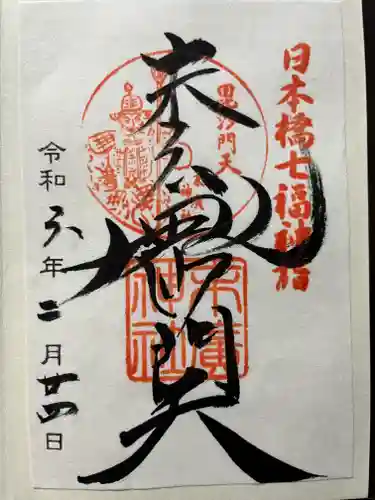 日本橋七福神詣
毘沙門天
末廣
毘沙門天
末廣
神社
令和六年二月廿四日